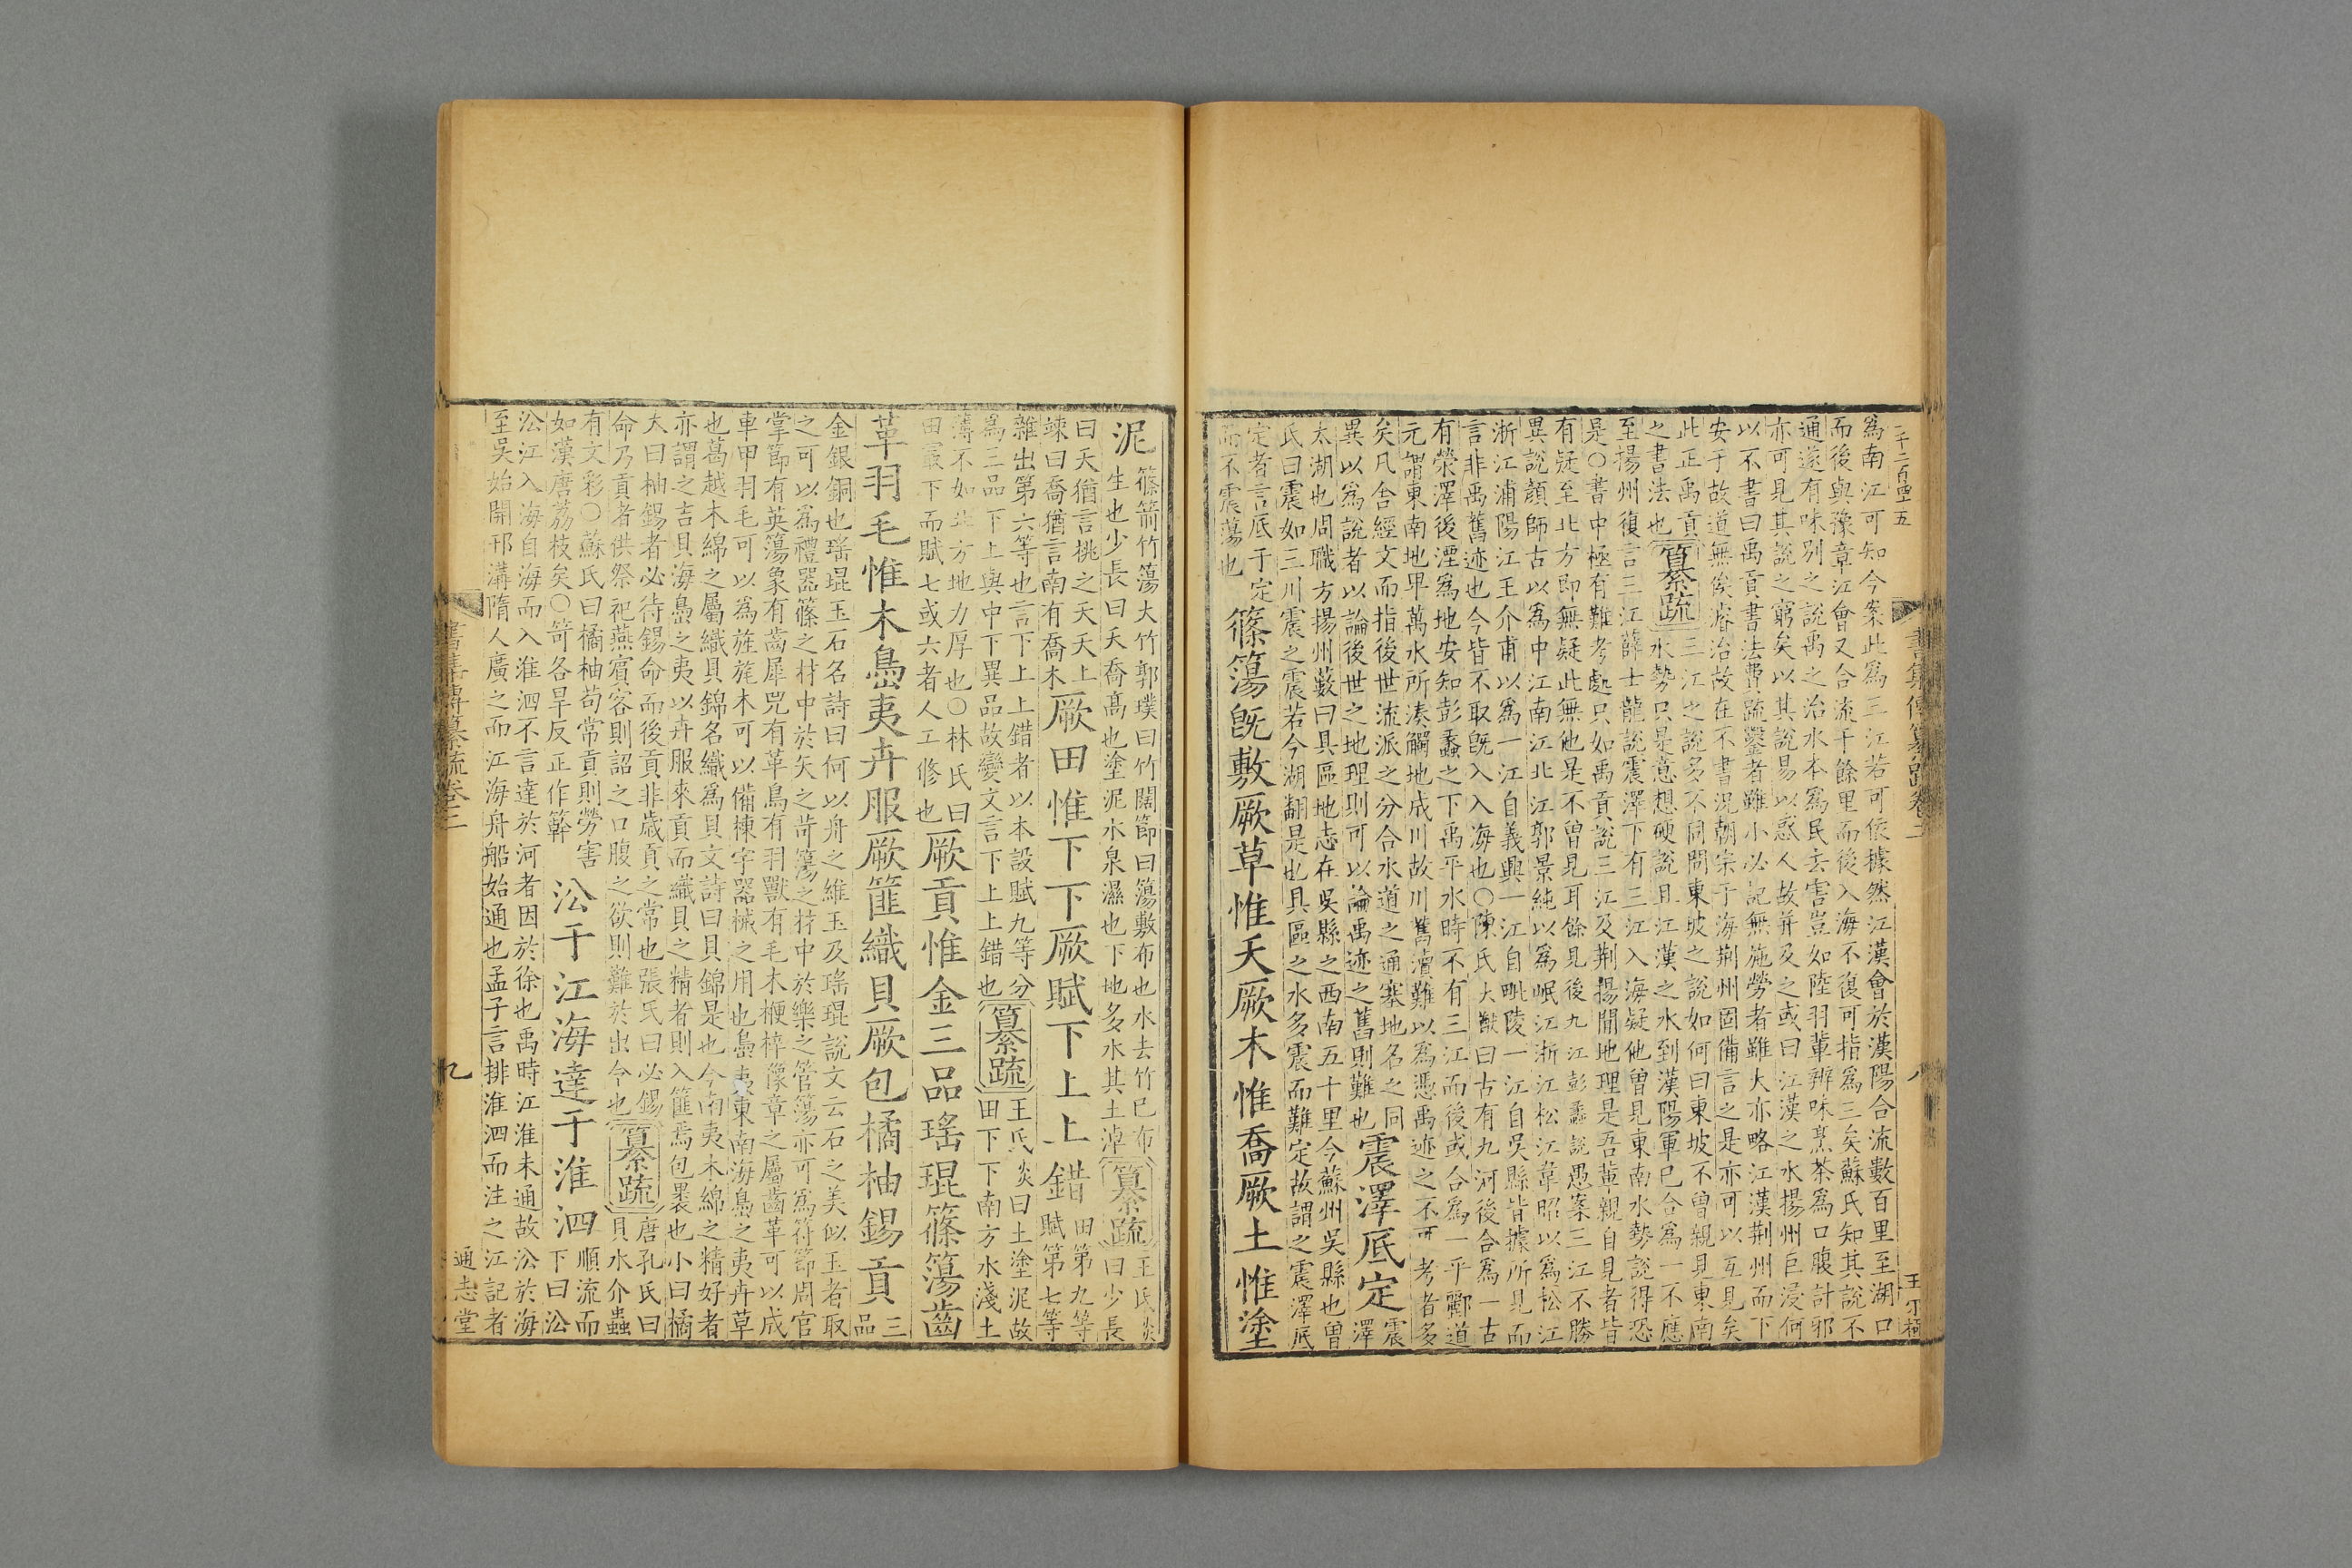 二千二百四五
爲南江可知今案此爲三江若可依據然江漢會於漢陽合流數百里至湖口
而後與豫章江會又合流千餘里而後入海不復可指爲三矣蘇氏知其說不
通遂有味別之說禹之治水本爲民去害豈如陸羽輩辨味烹茶爲口腹計邪
亦可見其說之窮矣以其說易以惑人故并及之或曰江漢之水揚州巨浸何
以不書曰禹貢書法費疏鑿者雖小必記無施勞者雖大亦略江漢荆州而下
安于故道無俟濬治故在不書況朝宗于海荆州固備言之是亦可以互見矣
此正禹貢之書法也
纂疏
三江之說多不同問東坡之說如何曰東坡不曾親見東南
水勢只是意想硬說且江漢之水到漢陽軍已合爲一不應
至揚州復言三江薛士龍說震澤下有三江入海疑他曾見東南水勢說得恐
是○書中極有難考處只如禹貢說三江及荆揚間地理是吾輩親自見者皆
有疑至北方即無疑此無他是不曾見耳餘見後九江彭蠡說愚案三江不勝
異說顔師古以爲中江南江北江郭景純以爲岷江浙江松江韋昭以爲松江
浙江浦陽江王介甫以爲一江自義興一江自毗陵一江自吳縣皆據所見而
言非禹舊迹也今皆不取旣入入海也○陳氏大猷曰古有九河後合爲一古
有滎澤後湮爲地安知彭蠡之下禹平水時不有三江而後或合爲一乎酈道
元謂東南地卑萬水所湊觸地成川故川舊瀆難以爲憑禹迹之不可考者多
矣凡舍經文而指後世流派之分合水道之通塞地名之同
異以爲說者以論後世之地理則可以論禹迹之舊則難也
震澤底定
震澤
太湖也周職方揚州藪曰具區地志在吳縣之西南五十里今蘇州吳縣也曾
氏曰震如三川震之震若今湖翻是也具區之水多震而難定故謂之震澤底
定者言底于定
而不震蕩也
篠簜旣敷厥草惟夭厥木惟喬厥土惟塗
書集傳纂疏卷二
八
泥
篠箭竹簜大竹郭璞曰竹闊節曰簜敷布也水去竹已布
生也少長曰夭喬高也塗泥水泉濕也下地多水其土淖
纂疏
王氏炎
曰少長
曰夭猶言桃之夭夭上
竦曰喬猶言南有喬木
厥田惟下下厥賦下上上錯
田第九等
賦第七等
雜出第六等也言下上上錯者以本設賦九等分
爲三品下上與中下異品故變文言下上上錯也
纂疏
王氏炎曰土塗泥故
田下下南方水淺土
薄不如北方地力厚也○林氏曰
田最下而賦七或六者人工修也
厥貢惟金三品瑤琨篠簜齒
革羽毛惟木島夷卉服厥篚織貝厥包橘柚錫貢
三
品
金銀銅也瑤琨玉石名詩曰何以舟之維玉及瑤琨說文云石之美似玉者取
之可以爲禮器篠之材中於矢之笴簜之材中於樂之管簜亦可爲符節周官
掌節有英簜象有齒犀兕有革鳥有羽獸有毛木楩梓豫章之屬齒革可以成
車甲羽毛可以爲旌旄木可以備棟宇器械之用也島夷東南海島之夷卉草
也葛越木綿之屬織貝錦名織爲貝文詩曰貝錦是也今南夷木綿之精好者
亦謂之吉貝海島之夷以卉服來貢而織貝之精者則入篚焉包裹也小曰橘
大曰柚錫者必待錫命而後貢非歲貢之常也張氏曰必錫
命乃貢者供祭祀燕賓客則詔之口腹之欲則難於出令也
纂疏
唐孔氏曰
貝水介蟲
有文彩○蘇氏曰橘柚苟常貢則勞害
如漢唐荔枝矣○笴各旱反正作簳
沿于江海達于淮泗
順流而
下曰沿
沿江入海自海而入淮泗不言達於河者因於徐也禹時江淮未通故沿於海
至吳始開邗溝隋人廣之而江海舟船始通也孟子言排淮泗而注之江記者
書集傳纂疏卷二
九
通志堂